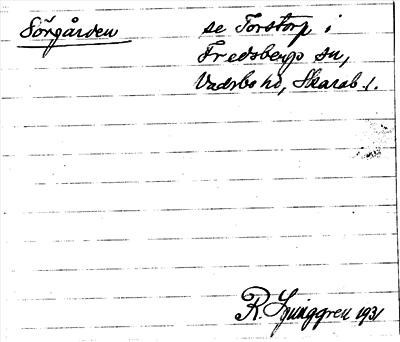 Sörgården se Torstorp i
Fredsberg sn,
Vadsbo hd, Skarab. l.
R. Ljunggren 1931